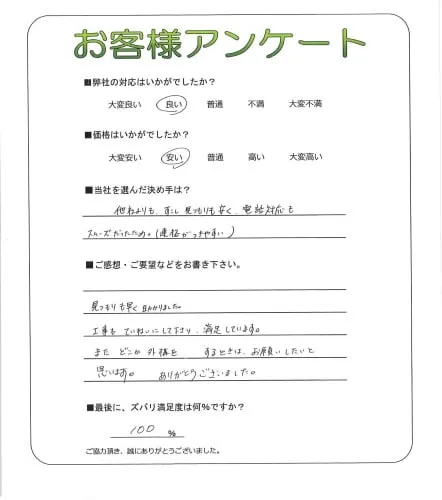 お客様アンケート
■弊社の対応はいかがでしたか？
大変良い 良い 普通 不満 大変不満
■価格はいかがでしたか？
大変安い 安い 普通 高い 大変高い
■当社を選んだ決め手は？
他社よりも、すこし見つもりも安く、電話対応も
スムーズだったため。（連絡がつきやすい）
■ご感想・ご要望などをお書き下さい。
見つもりも早く助かりました。
工事も ていねいにして下さり、満足しています。
また どこか 外構を するときは、お願いしたいと
思います。 ありがとうございました。
■最後に、ズバリ満足度は何％ですか？
100 ％
ご協力頂き、誠にありがとうございました。